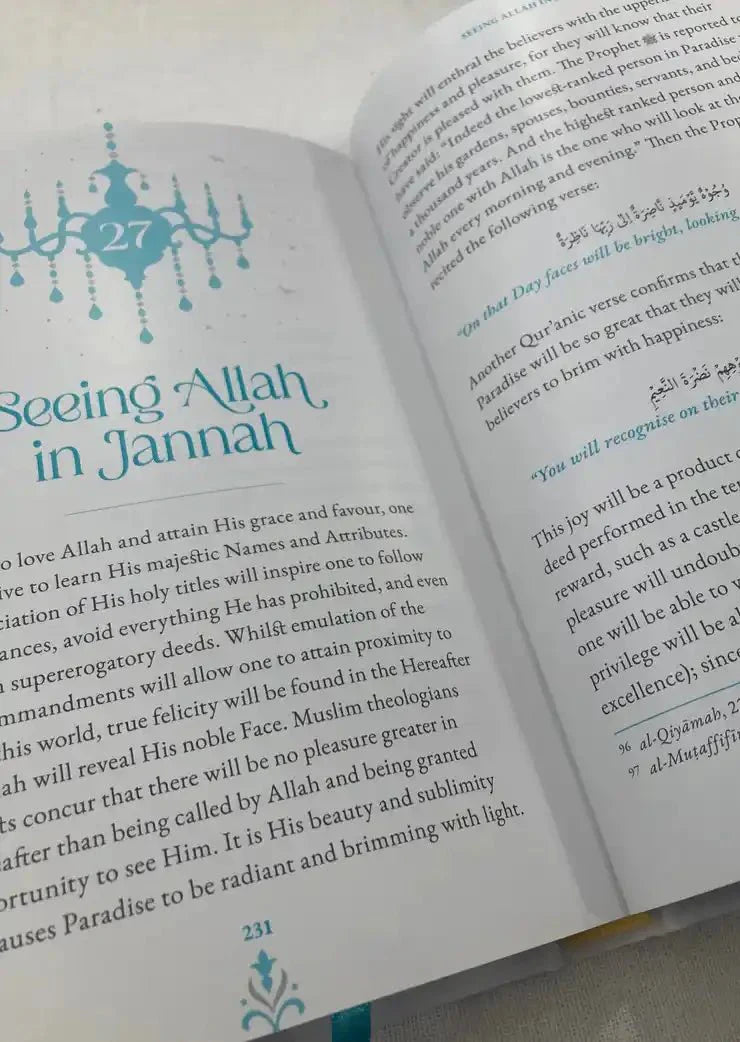 27
Seeing Allah
in Jannah
o love Allah and attain His grace and favour, one
ive to learn His majestic Names and Attributes.
ciation of His holy titles will inspire one to follow
ances, avoid everything He has prohibited, and even
supererogatory deeds. Whilst emulation of the
mmandments will allow one to attain proximity to
his world, true felicity will be found in the Hereafter
ah will reveal His noble Face. Muslim theologians
ts concur that there will be no pleasure greater in
after than being called by Allah and being granted
ortunity to see Him. It is His beauty and sublimity
auses Paradise to be radiant and brimming with light.
231
SEEING ALLAH IN
His sight will enthral the believers with the upper
of happiness and pleasure, for they will know that their
Creator is pleased with them. The Prophet ﷺ is reported to
have said: “Indeed the lowest-ranked person in Paradise
observe his gardens, spouses, bounties, servants, and bed
a thousand years. And the highest ranked person and
noble one with Allah is the one who will look at the
Allah every morning and evening.” Then the Prop
recited the following verse:
وُجُوهٌ يَوْمَئِذٍ نَاضِرَةٌ إِلَىٰ رَبِّهَا نَاظِرَةٌ
“On that Day faces will be bright, looking
Another Qur’anic verse confirms that th
Paradise will be so great that they will
believers to brim with happiness:
وهِهِمْ نَضْرَةَ النَّعِيمِ
“You will recognise on their
This joy will be a product o
deed performed in the te
reward, such as a castle
pleasure will undoub
one will be able to v
privilege will be al
excellence); since
96 al-Qiyāmah, 22
97 al-Muṭaffifīn